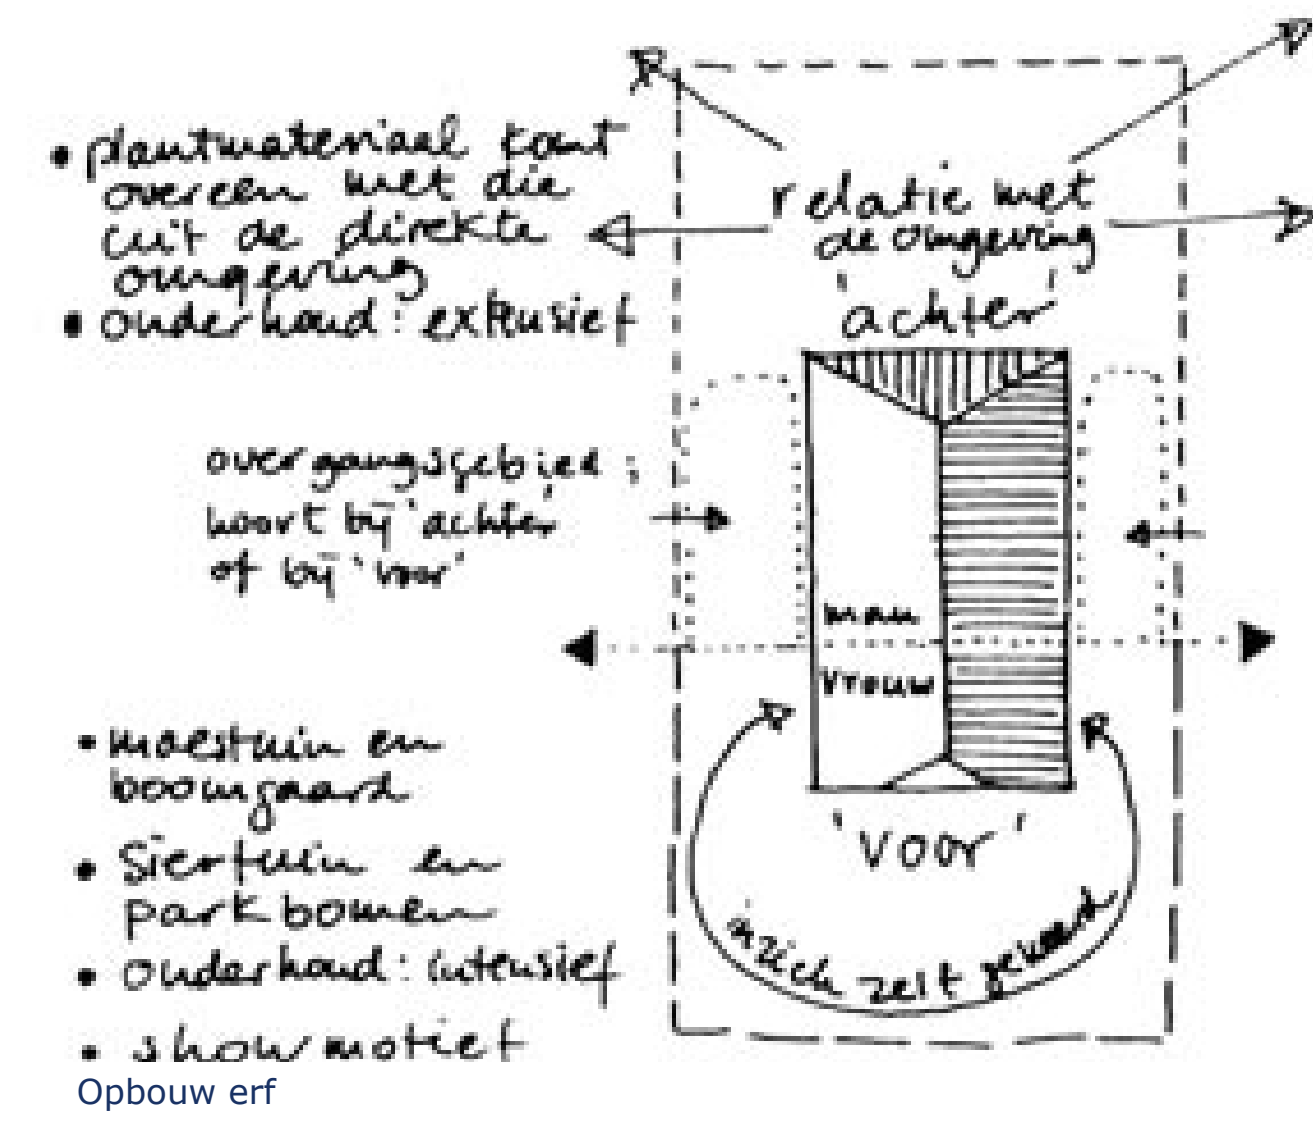 • plantmateriaal komt
overeen met die
uit de direkte
omgeving
• onderhoud: extensief
relatie met
de omgeving
'achter'
overgangsgebied:
hoort bij 'achter'
of bij 'voor'
man
vrouw
• moestuin en
boomgaard
• siertuin en
parkbomen
• onderhoud: intensief
• showmotief
'voor'
in zich zelf gekeerd
Opbouw erf